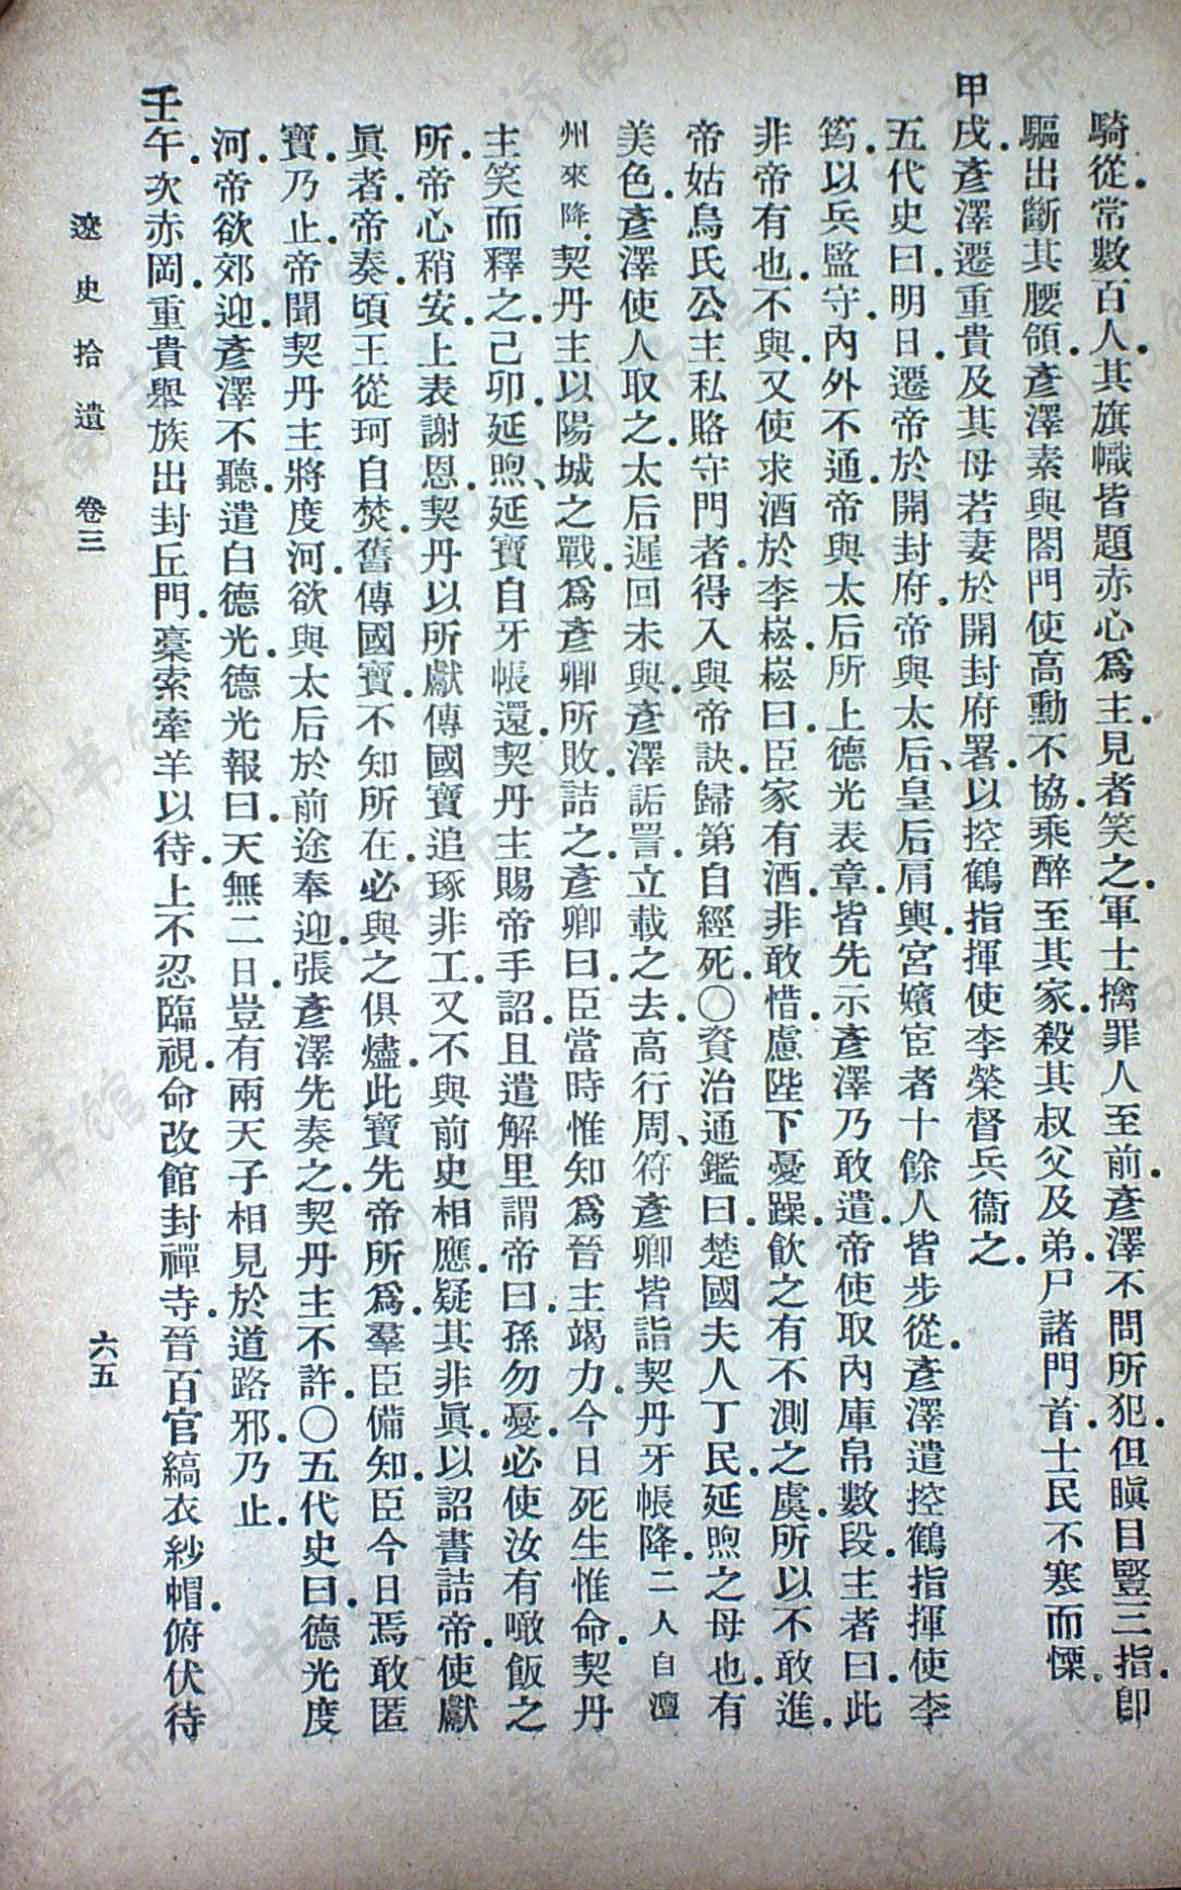 騎從.常數百人.其旗幟皆題赤心爲主.見者笑之.軍士擒罪人至前.彥澤不問所犯.但瞋目豎三指.卽
驅出斷其腰領.彥澤素與閤門使高勳不協.乘醉至其家.殺其叔父及弟.尸諸門首.士民不寒而慄.
甲戌.彥澤遷重貴及其母若妻於開封府署.以控鶴指揮使李榮督兵衞之.
五代史曰.明日.遷帝於開封府.帝與太后、皇后肩輿.宮嬪宦者十餘人皆步從.彥澤遣控鶴指揮使李
筠.以兵監守.內外不通.帝與太后所上德光表章.皆先示彥澤乃敢遣.帝使取內庫帛數段.主者曰.此
非帝有也.不與.又使求酒於李崧.崧曰.臣家有酒.非敢惜.慮陛下憂躁.飮之有不測之虞.所以不敢進.
帝姑烏氏公主私賂守門者.得入與帝訣.歸第自經死.〇資治通鑑曰.楚國夫人丁民.延煦之母也.有
美色.彥澤使人取之.太后遲回未與.彥澤詬詈.立載之去.高行周、符彥卿皆詣契丹牙帳降.二人自澶
州來降.契丹主以陽城之戰.爲彥卿所敗.詰之.彥卿曰.臣當時惟知爲晉主竭力.今日死生惟命.契丹
主笑而釋之.己卯.延煦、延寶自牙帳還.契丹主賜帝手詔.且遣解里謂帝曰.孫勿憂.必使汝有噉飯之
所.帝心稍安.上表謝恩.契丹以所獻傳國寶追琢非工.又不與前史相應.疑其非眞.以詔書詰帝.使獻
眞者.帝奏.頃王從珂自焚.舊傳國寶.不知所在.必與之俱燼.此寶先帝所爲.羣臣備知.臣今日焉敢匿
寶.乃止.帝聞契丹主將度河.欲與太后於前途奉迎.張彥澤先奏之.契丹主不許.〇五代史曰.德光度
河.帝欲郊迎.彥澤不聽.遣白德光.德光報曰.天無二日.豈有兩天子相見於道路邪.乃止.
壬午.次赤岡.重貴舉族出封丘門.稾索牽羊以待.上不忍臨視.命改館封禪寺.晉百官縞衣紗帽.俯伏待
遼史拾遺 卷三 六五